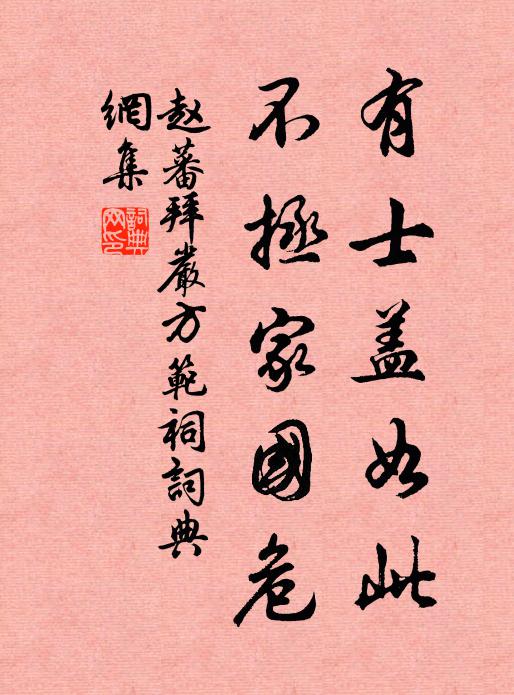 有士盖如此
不拯家國危
赵蕃拜嚴方範祠詞典
網集
詞典
网印